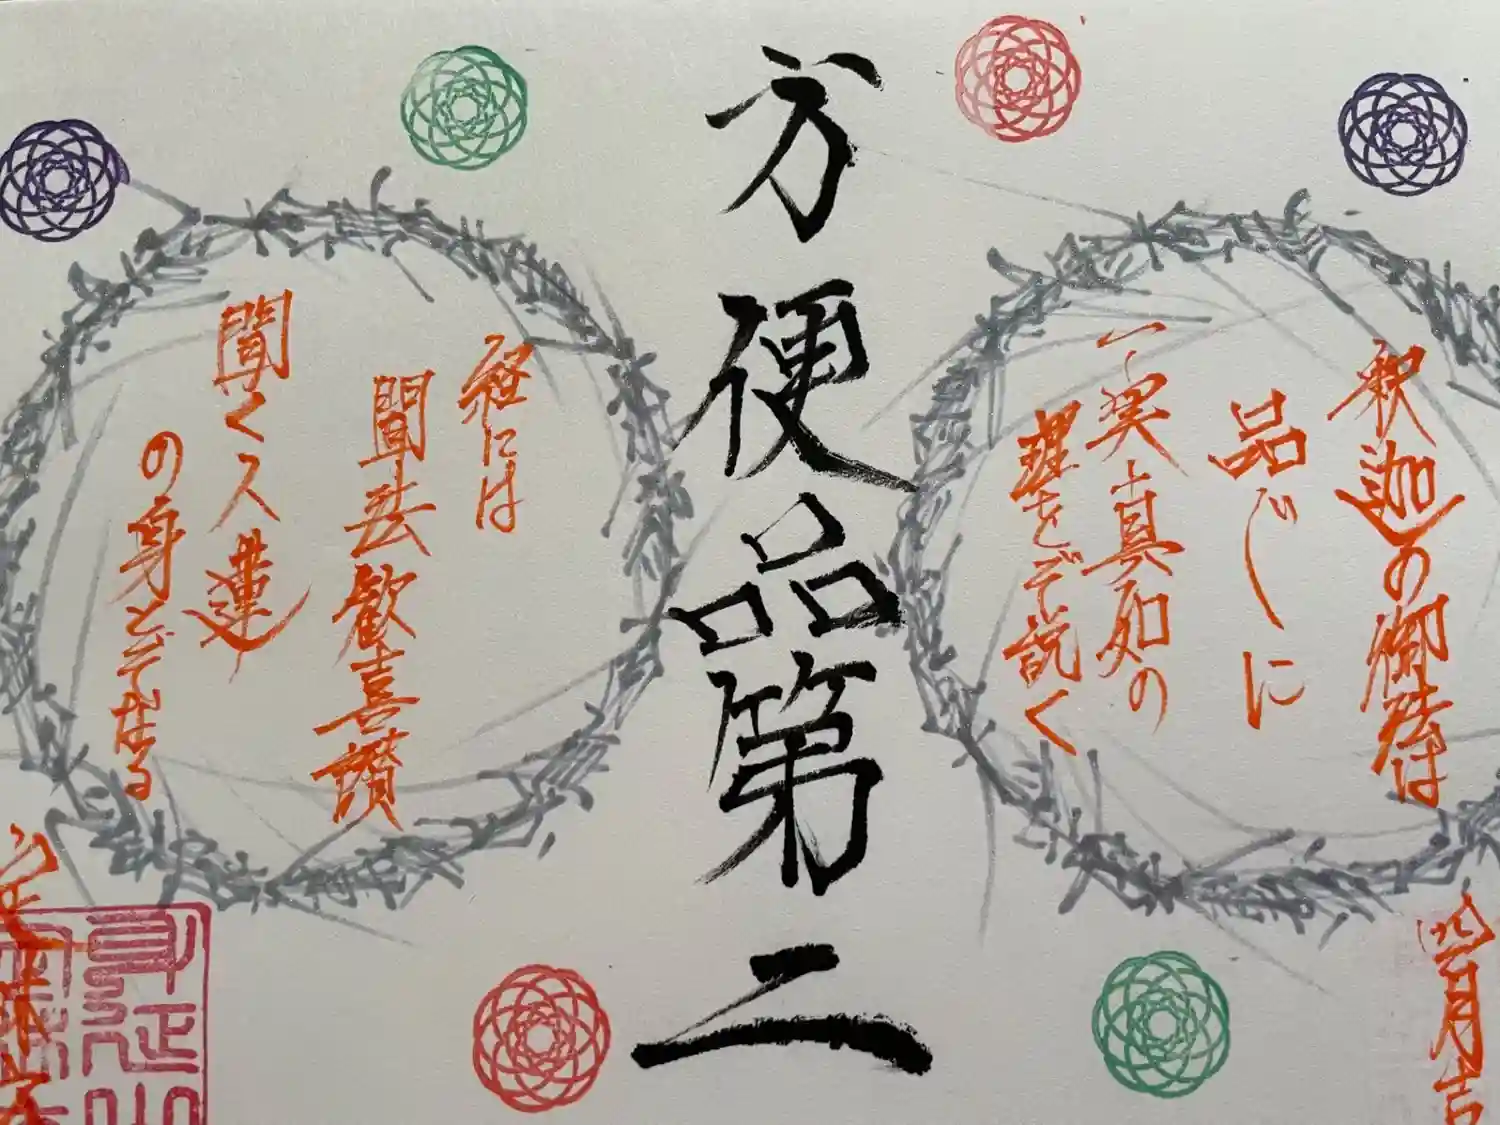 釈迦の御法は
品じに
一実真如の
理をぞ説く
方便品第二
経には
聞法歓喜讃
聞く人蓮
の身とぞなる
身延山